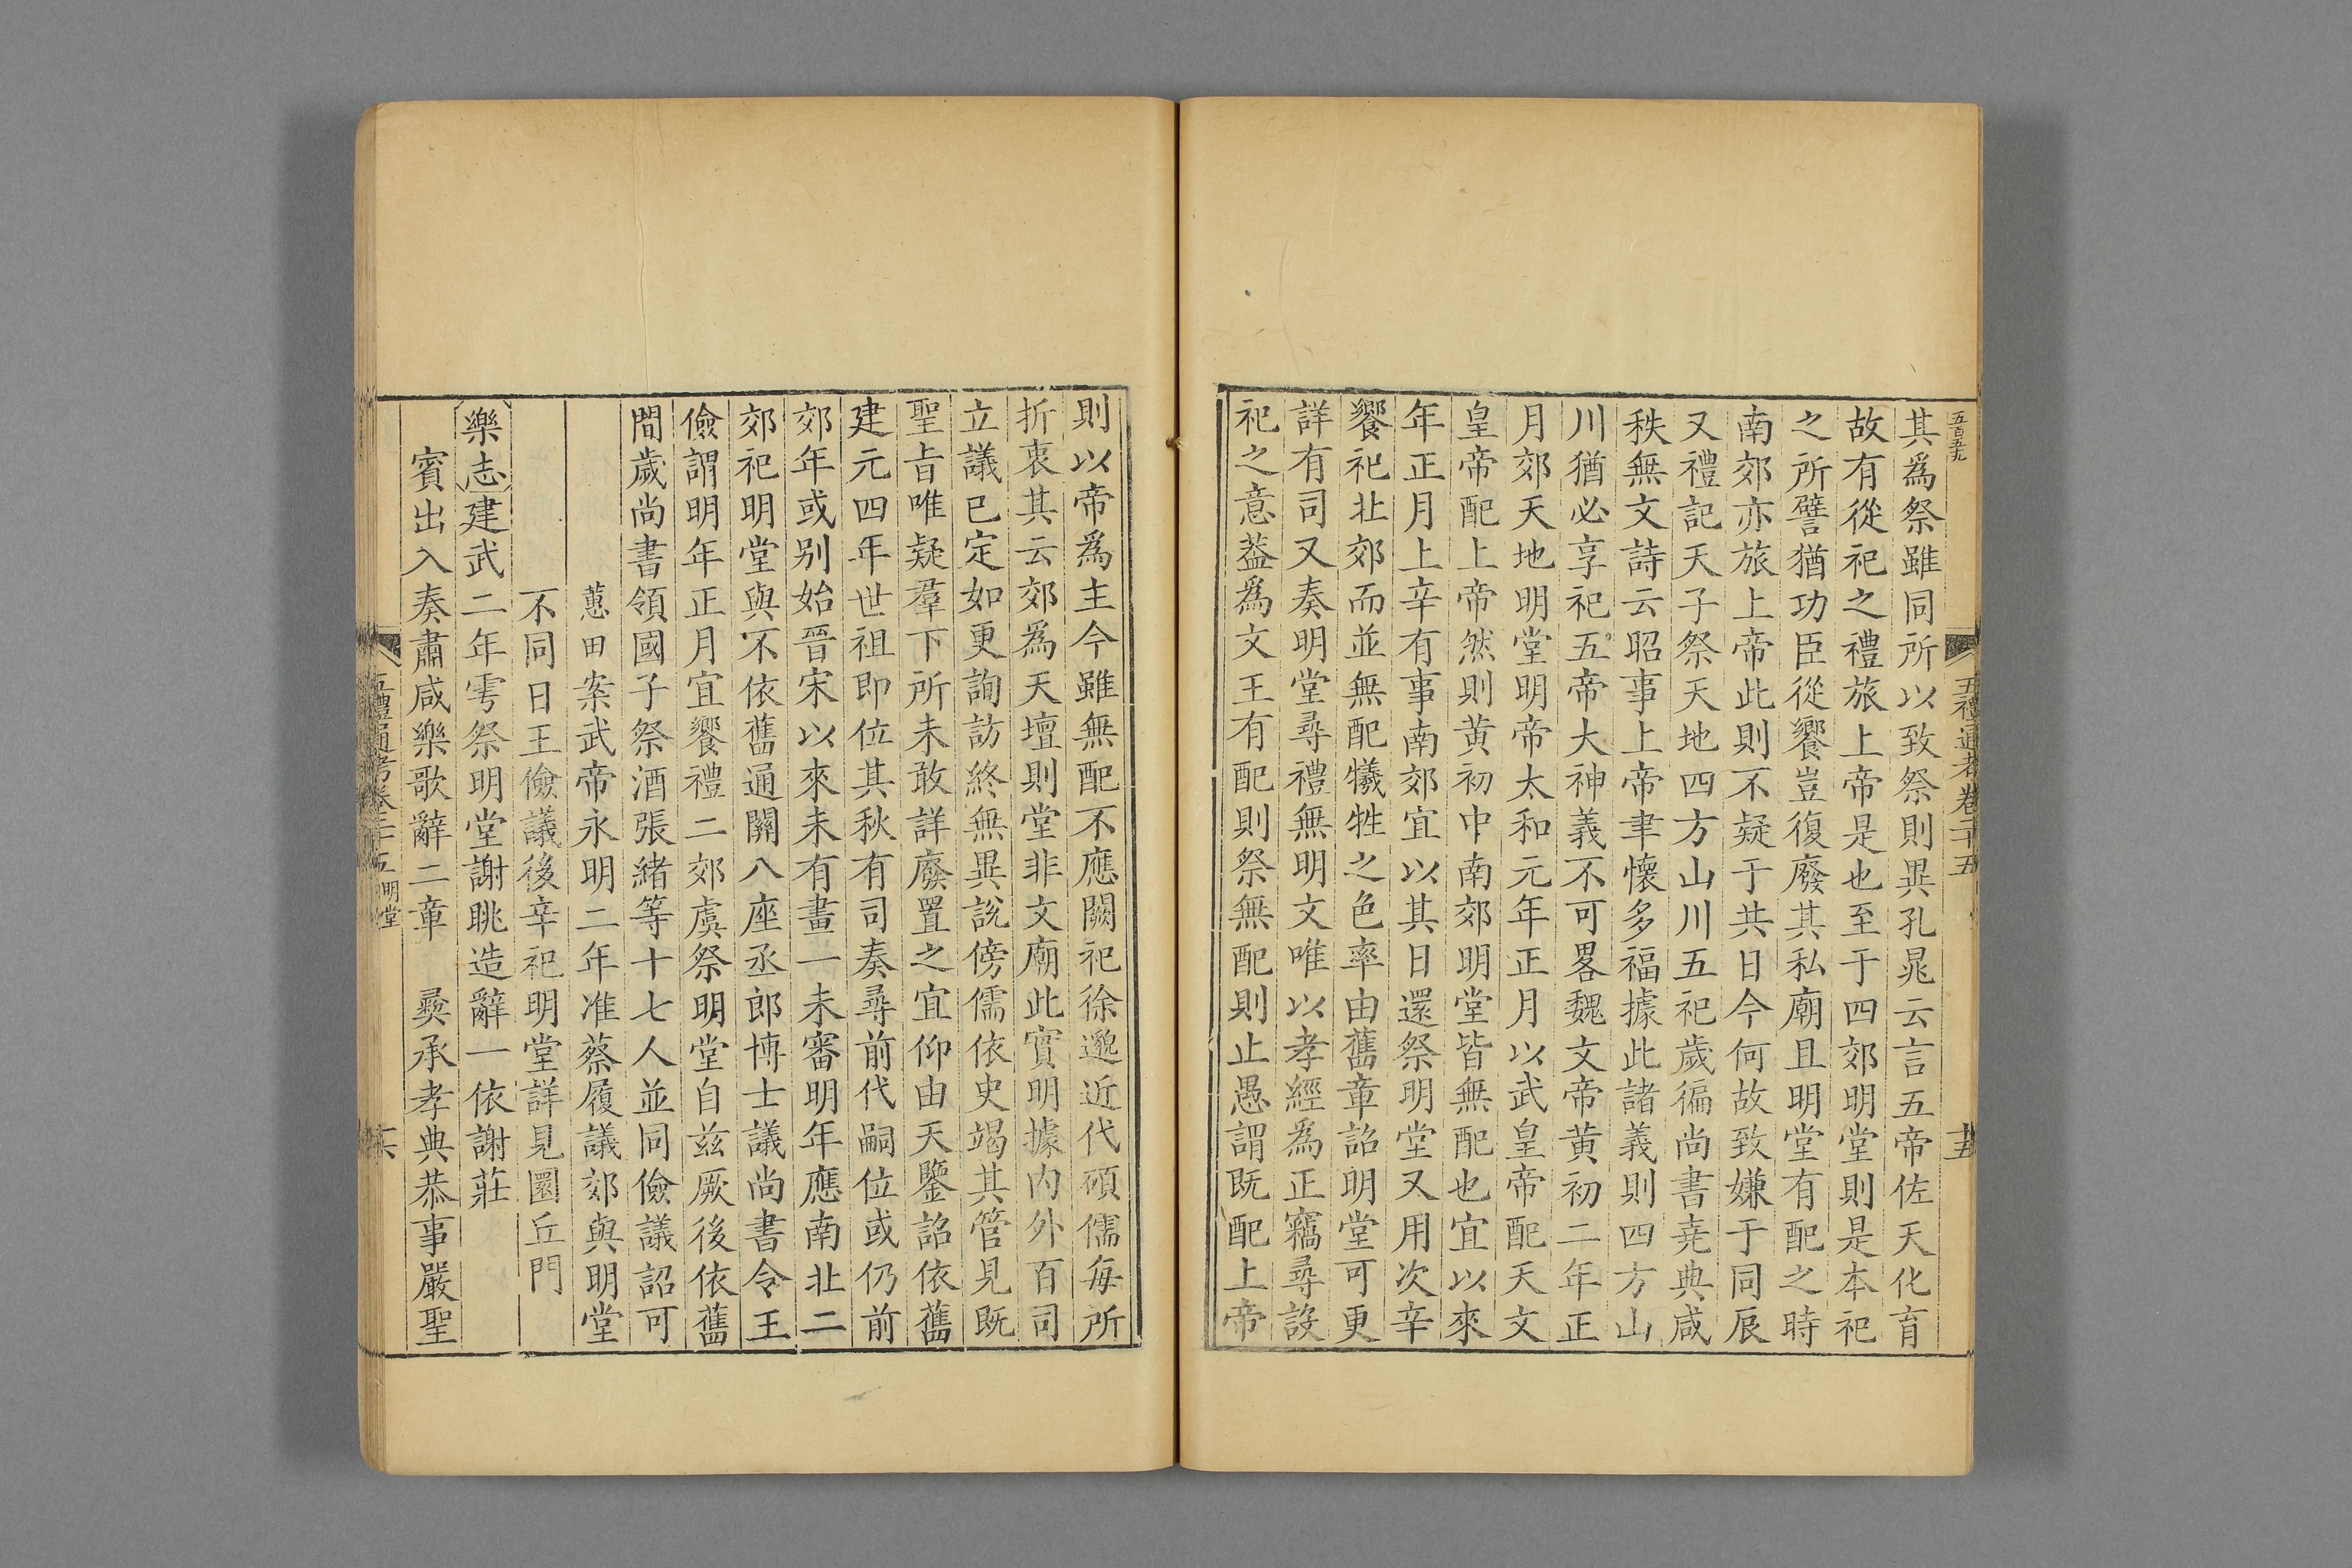 五百五九
五禮通考卷二十五
十五
其爲祭雖同所以致祭則異孔晁云言五帝佐天化育
故有從祀之禮旅上帝是也至于四郊明堂則是本祀
之所譬猶功臣從饗豈復廢其私廟且明堂有配之時
南郊亦旅上帝此則不疑于共日今何故致嫌于同辰
又禮記天子祭天地四方山川五祀歲徧尚書堯典咸
秩無文詩云昭事上帝聿懷多福據此諸義則四方山
川猶必享祀五帝大神義不可畧魏文帝黄初二年正
月郊天地明堂明帝太和元年正月以武皇帝配天文
皇帝配上帝然則黄初中南郊明堂皆無配也宜以來
年正月上辛有事南郊宜以其日還祭明堂又用次辛
饗祀北郊而並無配犧牲之色率由舊章詔明堂可更
詳有司又奏明堂尋禮無明文唯以孝經爲正竊尋設
祀之意葢爲文王有配則祭無配則止愚謂既配上帝
則以帝爲主今雖無配不應闕祀徐邈近代碩儒每所
折衷其云郊爲天壇則堂非文廟此實明據内外百司
立議已定如更詢訪終無異說傍儒依史竭其管見既
聖旨唯疑羣下所未敢詳廢置之宜仰由天鑒詔依舊
建元四年世祖即位其秋有司奏尋前代嗣位或仍前
郊年或别始晉宋以來未有畫一未審明年應南北二
郊祀明堂與不依舊通關八座丞郎博士議尚書令王
儉謂明年正月宜饗禮二郊虞祭明堂自兹厥後依舊
間歲尚書領國子祭酒張緒等十七人並同儉議詔可
蕙田案武帝永明二年准蔡履議郊與明堂
不同日王儉議後辛祀明堂詳見圜丘門
樂志建武二年雩祭明堂謝朓造辭一依謝莊
賓出入奏肅咸樂歌辭二章　彝承孝典恭事嚴聖
五禮通考卷二十五明堂
十六